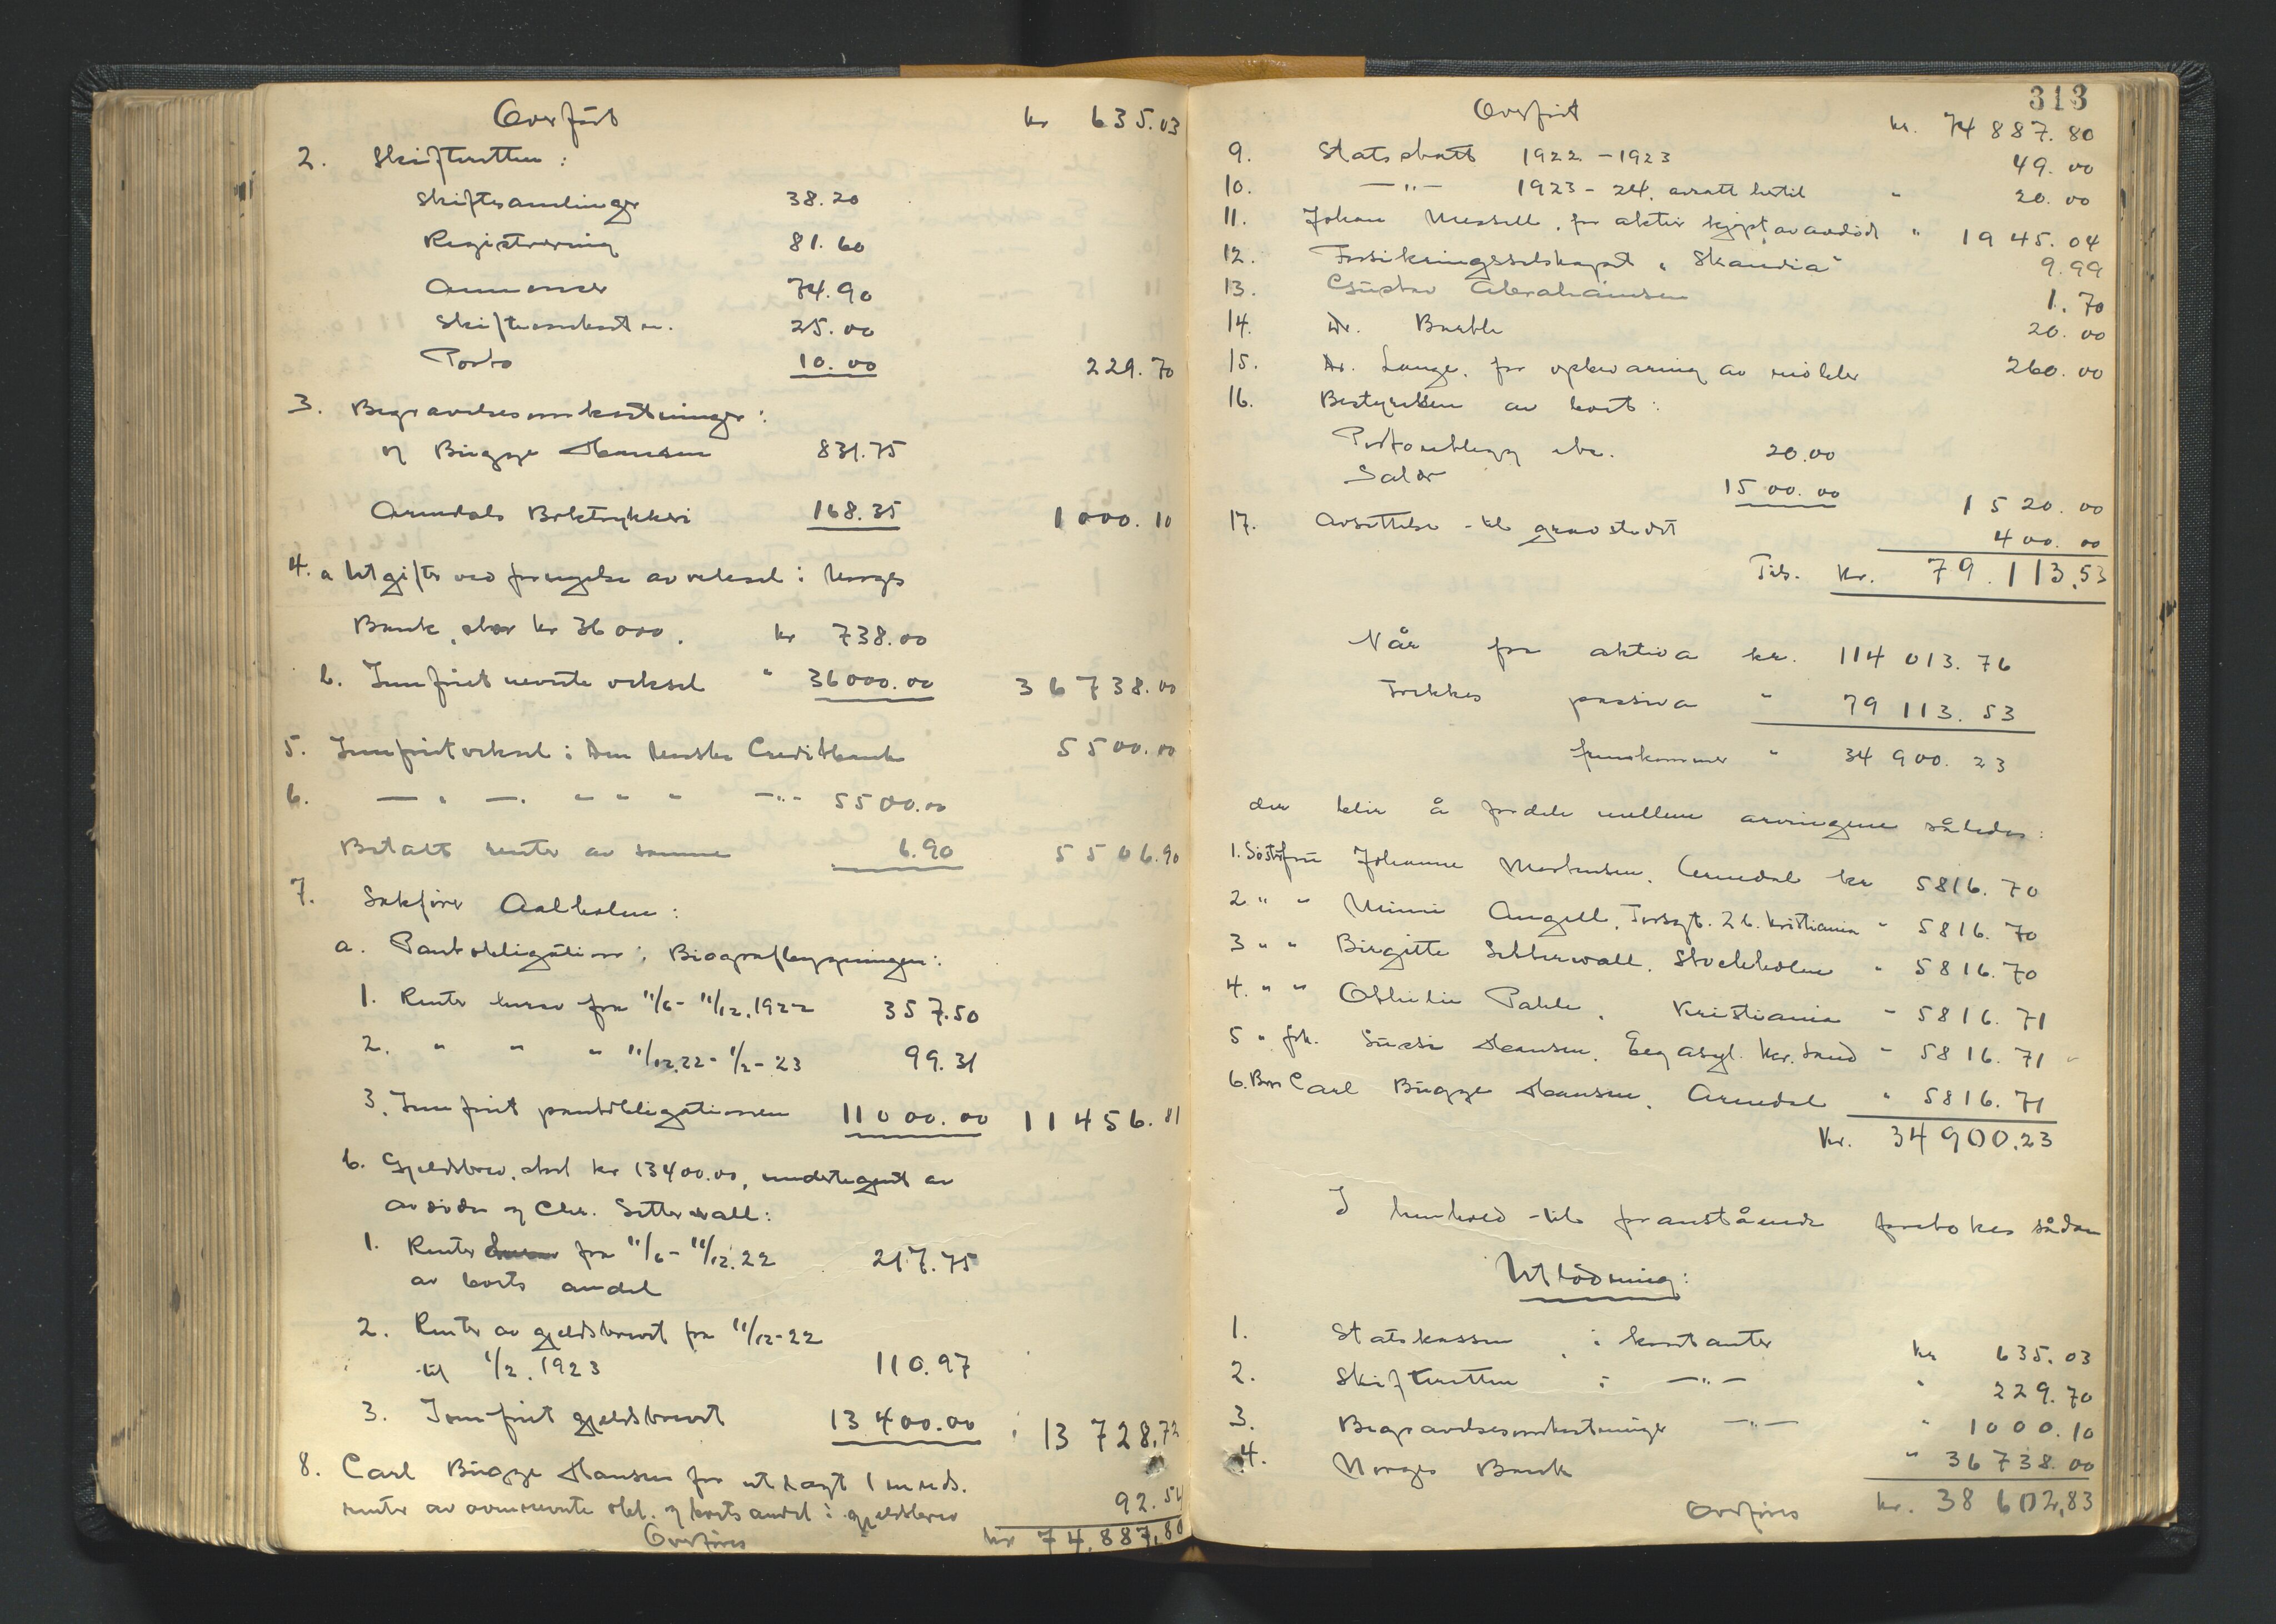 Overført kr 635.03
2. Skifteretten:
Skiftesamlinger 38.20
Registrering 81.60
Annonser 74.90
Skifteomkostn. 25.00
Porto 10.00 229.70
3. Begravelsesomkostninger:
og Bugge Hansen 831.75
Arendals Boktrykkeri 168.35 1000.10
4. a Utgifter ved fornyelse av veksel i Norges
Bank, stor kr 36000. kr 738.00
b. Innfriet nevnte veksel " 36000.00 36738.00
5. Innfriet veksel i Den Norske Creditbank 5500.00
6. — " — " " " —"— 5500.00
Betalt renter av samme 6.90 5506.90
7. Sakfører Aalholm:
a. Pantobligation i Biografbygningen:
1. Renter herav fra 11/6 - 11/12.1922 357.50
2. " " " 11/12.22 - 1/2 - 23 99.31
3. Innfriet pantobligationen 11000.00 11456.81
b. Gjeldsbrev, stort kr 13400.00, undertegnet av
avdøde og Chr. Setterwall:
1. Renter fra 11/6 - 11/12.22 217.75
av boets andel
2. Renter av gjeldsbrevet fra 11/12-22
til 1/2.1923 110.97
3. Innfriet gjeldsbrevet 13400.00 13728.72
8. Carl Bugge Hansen for utlagt 1 mneds.
renter av ovennevnte obl. og boets andel i gjeldsbrev 92.54
Overføres kr 74.887,80
313
Overført kr. 74887.80
9. Statsskatt 1922 - 1923 49.00
10. —"— 1923 - 24, avsatt hertil " 20.00
11. Johan Messell, for aktier kjøpt av avdøde " 1945.04
12. Forsikringsselskapet "Skandia" 9.99
13. Gustav Abrahamsen 1.70
14. Dr. Barble 20.00
15. Dr. Lange, for opbevaring av møbler 260.00
16. Bestyrelsen av boet:
Portoutlegg etc. 20.00
Salær 1500.00 1520.00
17. Avsettelse til gravstedet 400.00
Tils. kr. 79.113,53
Når fra aktiva kr. 114013.76
trekkes passiva " 79113.53
fremkommer " 34900.23
der blir å fordele mellem arvingene således:
1. Søster fru Johanne Mortensen, Arendal kr 5816.70
2 " " Minni Angell, Torsgt. 26. Kristiania " 5816.70
3 " " Birgitte Setterwall, Stockholm " 5816.70
4. " " Othilie Pahle, Kristiania " 5816.71
5 " frk. Sussi Hansen, Eeg asyl. Kr. Sand " 5816.71
6. Bror Carl Bugge Hansen, Arendal " 5816.71
Kr. 34900.23
I henhold til foranstående foretokes sådan
Utlodning:
1. Statskassen i kontanter kr 635.03
2. Skifteretten i —"— " 229.70
3. Begravelsesomkostninger —"— " 1000.10
4. Norges Bank " 36738.00
Overføres kr. 38602,83